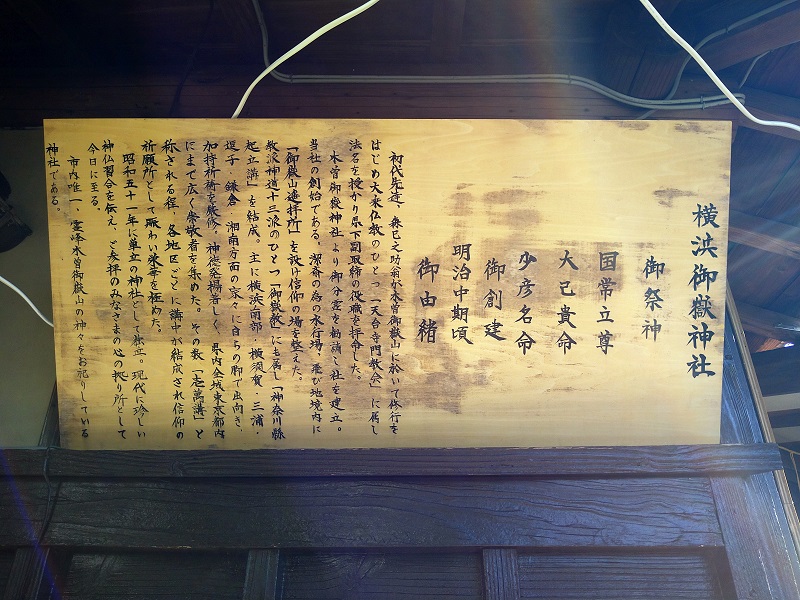 横浜御嶽神社
御祭神
国常立尊
大己貴命
少彦名命
御創建
明治中期頃
御由緒
初代先達、森巳之助翁が木曽御嶽山に於いて修行を
はじめ大乗仏教のひとつ「天台寺門教会」に属し
法名を授かり県下副取締の役職を拝命した。
木曽御嶽神社より御分霊を勧請し社を建立。
当社の創始である。潔斎の為の水行場、並び地境内に
「御嶽山遙拝所」を設け信仰の場を整えた。
教派神道十三派のひとつ「御嶽教」にも属し「神奈川縣
起立講」を結成。主に横浜南部・横須賀・三浦・
逗子・鎌倉・湘南方面の家々に自らの脚で出向き、
加持祈祷を厳修。神徳発揚著しく、県内全域東京都内
にまで広く崇敬者を集めた。その数「壱萬講」と
称される程、各地区ごとに講中が結成され信仰の
祈願所として賑わい栄華を極めた。
昭和五十一年に単立の神社として独立。現代に珍しい
神仏習合を伝え、ご参拝のみなさまの心の拠り所として
今日に至る。
市内唯一、霊峰木曽御嶽山の神々をお祀りしている
神社である。